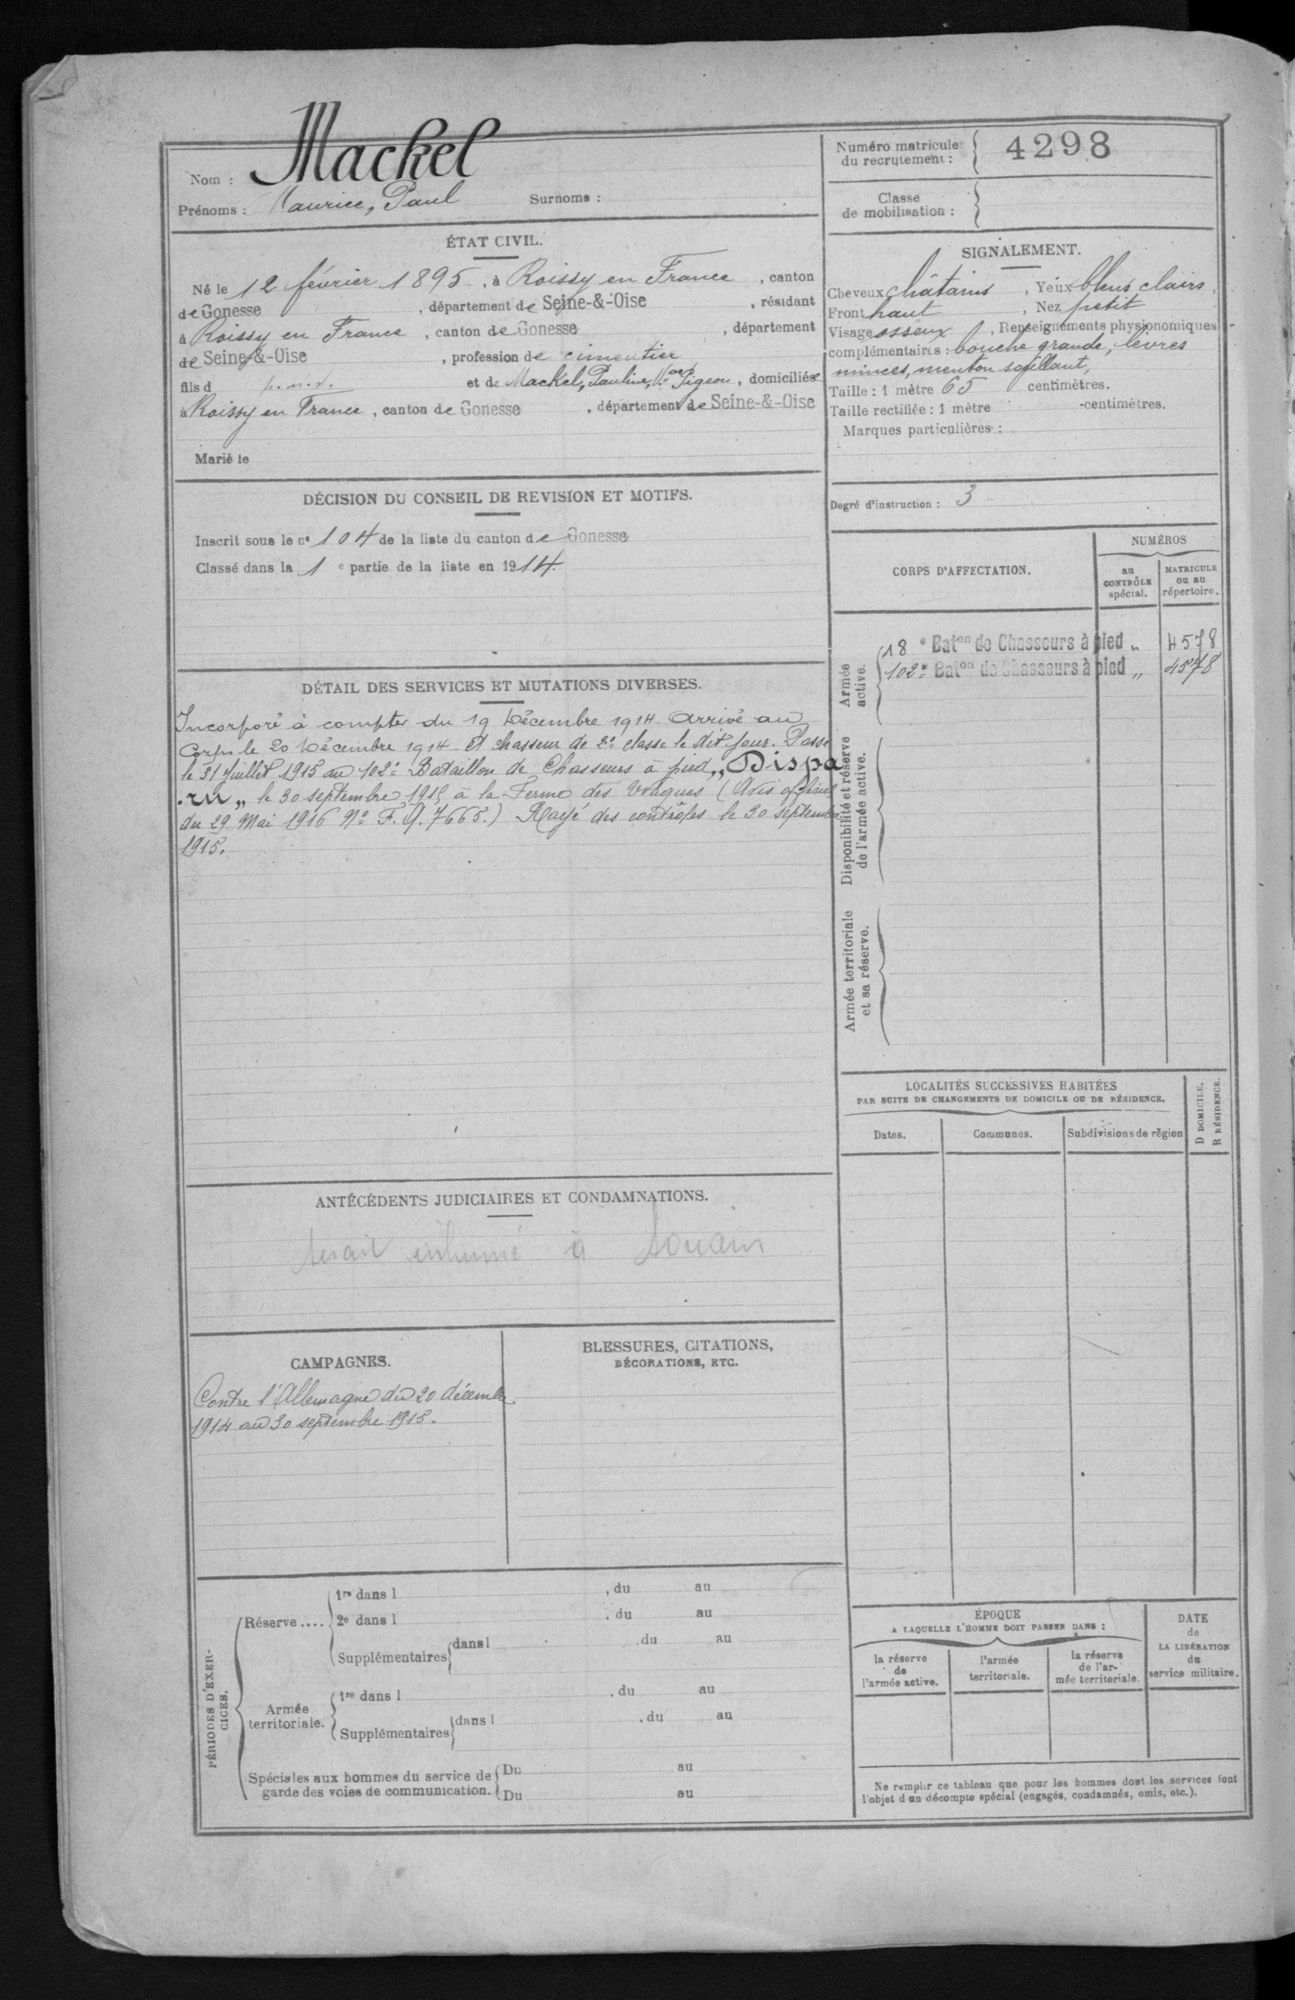 Nom : Mackel
Prénoms : Maurice, Paul Surnoms :
Numéro matricule du recrutement : 4298
Classe de mobilisation :
ÉTAT CIVIL.
Né le 12 février 1895, à Roissy en France, canton
de Gonesse, département de Seine-&-Oise, résidant
à Roissy en France, canton de Gonesse, département
de Seine-&-Oise, profession de cimentier
fils d p.n.d. et de Mackel, Pauline, Pigeon, domiciliés
à Roissy en France, canton de Gonesse, département de Seine-&-Oise
Marié le
SIGNALEMENT.
Cheveux châtains, Yeux bleus clairs,
Front haut, Nez petit
Visage osseux, Renseignements physionomiques
complémentaires : bouche grande, lèvres
minces, menton saillant,
Taille : 1 mètre 65 centimètres.
Taille rectifiée : 1 mètre centimètres.
Marques particulières :
Degré d'instruction : 3
DÉCISION DU CONSEIL DE REVISION ET MOTIFS.
Inscrit sous le n° 104 de la liste du canton de Gonesse
Classé dans la 1e partie de la liste en 1914.
CORPS D'AFFECTATION.
NUMÉROS
au CONTRÔLE spécial.
MATRICULE ou au répertoire.
Armée active.
18e Baton de Chasseurs à pied „ 4578
102e Baton de Chasseurs à pied „ 4578
Disponibilité et réserve de l'armée active.
Armée territoriale et sa réserve.
DÉTAIL DES SERVICES ET MUTATIONS DIVERSES.
Incorporé à compter du 19 Décembre 1914 arrivé au
Corps le 20 Décembre 1914 et chasseur de 2e classe le dit jour. Passé
le 31 juillet 1915 au 102e Bataillon de Chasseurs à pied „Dispa
ru„ le 30 septembre 1915 à la Ferme des Wacques (Avis officiel
du 29 Mai 1916 No F.Q. 7665.) Rayé des contrôles le 30 septembre
1915.
LOCALITÉS SUCCESSIVES HABITÉES
PAR SUITE DE CHANGEMENTS DE DOMICILE OU DE RÉSIDENCE.
D DOMICILE.
R RÉSIDENCE.
Dates. Communes. Subdivisions de région
ANTÉCÉDENTS JUDICIAIRES ET CONDAMNATIONS.
serait inhumé à Souain
CAMPAGNES.
Contre l'Allemagne du 20 décembre
1914 au 30 septembre 1915.
BLESSURES, CITATIONS,
DÉCORATIONS, ETC.
PÉRIODES D'EXERCICES.
Réserve....
1re dans l , du au
2e dans l , du au
Supplémentaires dans l du au
Armée territoriale.
1re dans l , du au
Supplémentaires dans l , du au
Spéciales aux hommes du service de Du au
garde des voies de communication. Du au
ÉPOQUE
A LAQUELLE L'HOMME DOIT PASSER DANS :
la réserve de l'armée active.
l'armée territoriale.
la réserve de l'armée territoriale.
DATE de LA LIBÉRATION du service militaire.
Ne remplir ce tableau que pour les hommes dont les services font
l'objet d'un décompte spécial (engagés, condamnés, omis, etc.).